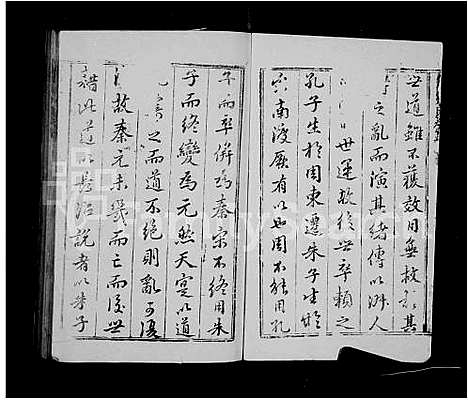 世道雖不獲效用無救於其
之亂而演其緒傳以淑人
世運教後世卒賴之
孔子生於周東遷朱子生於
宋南渡厥有以也周不能用孔
子而卒併為秦宋不終用朱
子而終變為元然天寔以道
之而道不絕則亂可復
故秦元未幾而亡而後世
藉此道以長治說者以朱子